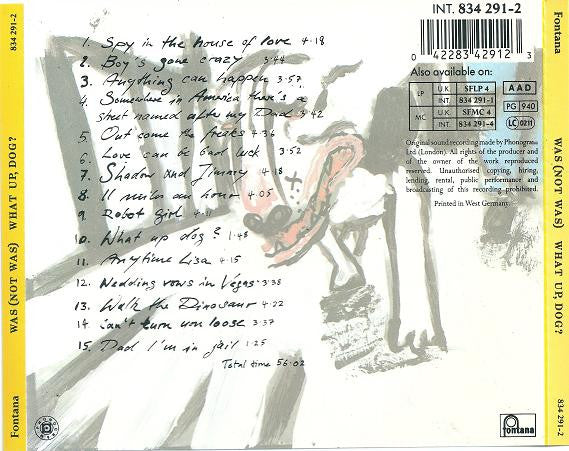 Fontana
834 291-2
WAS (NOT WAS) WHAT UP, DOG?
Fontana
834 291-2
1. Spy in the house of love 4.18
2. Boy's gone crazy 3.44
3. Anything can happen 3.57
4. Somewhere in America there's a
street named after my Dad 3.42
5. Out come the freaks 4.36
6. Love can be bad luck 3.52
7. Shadow and Jimmy 4.18
8. 11 miles an hour 4.05
9. Robot girl
10. What up dog? 1.48
11. Anytime Lisa 4.15
12. Wedding vows in Vegas 3.38
13. Walk the Dinosaur 4.22
14 Can't turn you loose 3.37
15. Dad I'm in jail 1.25
Total time 56.02
INT. 834 291-2
0 42283 42912 3
Also available on:
LP U.K. SFLP 4
INT. 834 291-1
MC U.K. SFMC 4
INT. 834 291-4
AAD
PG 940
LC 0211
Original sound recording made by Phonogram
Ltd (London). All rights of the producer and
of the owner of the work reproduced
reserved. Unauthorised copying, hiring,
lending, rental, public performance and
broadcasting of this recording prohibited.
Printed in West Germany.
fontana
Fontana
834 291-2
WAS (NOT WAS) WHAT UP, DOG?
834 291-2